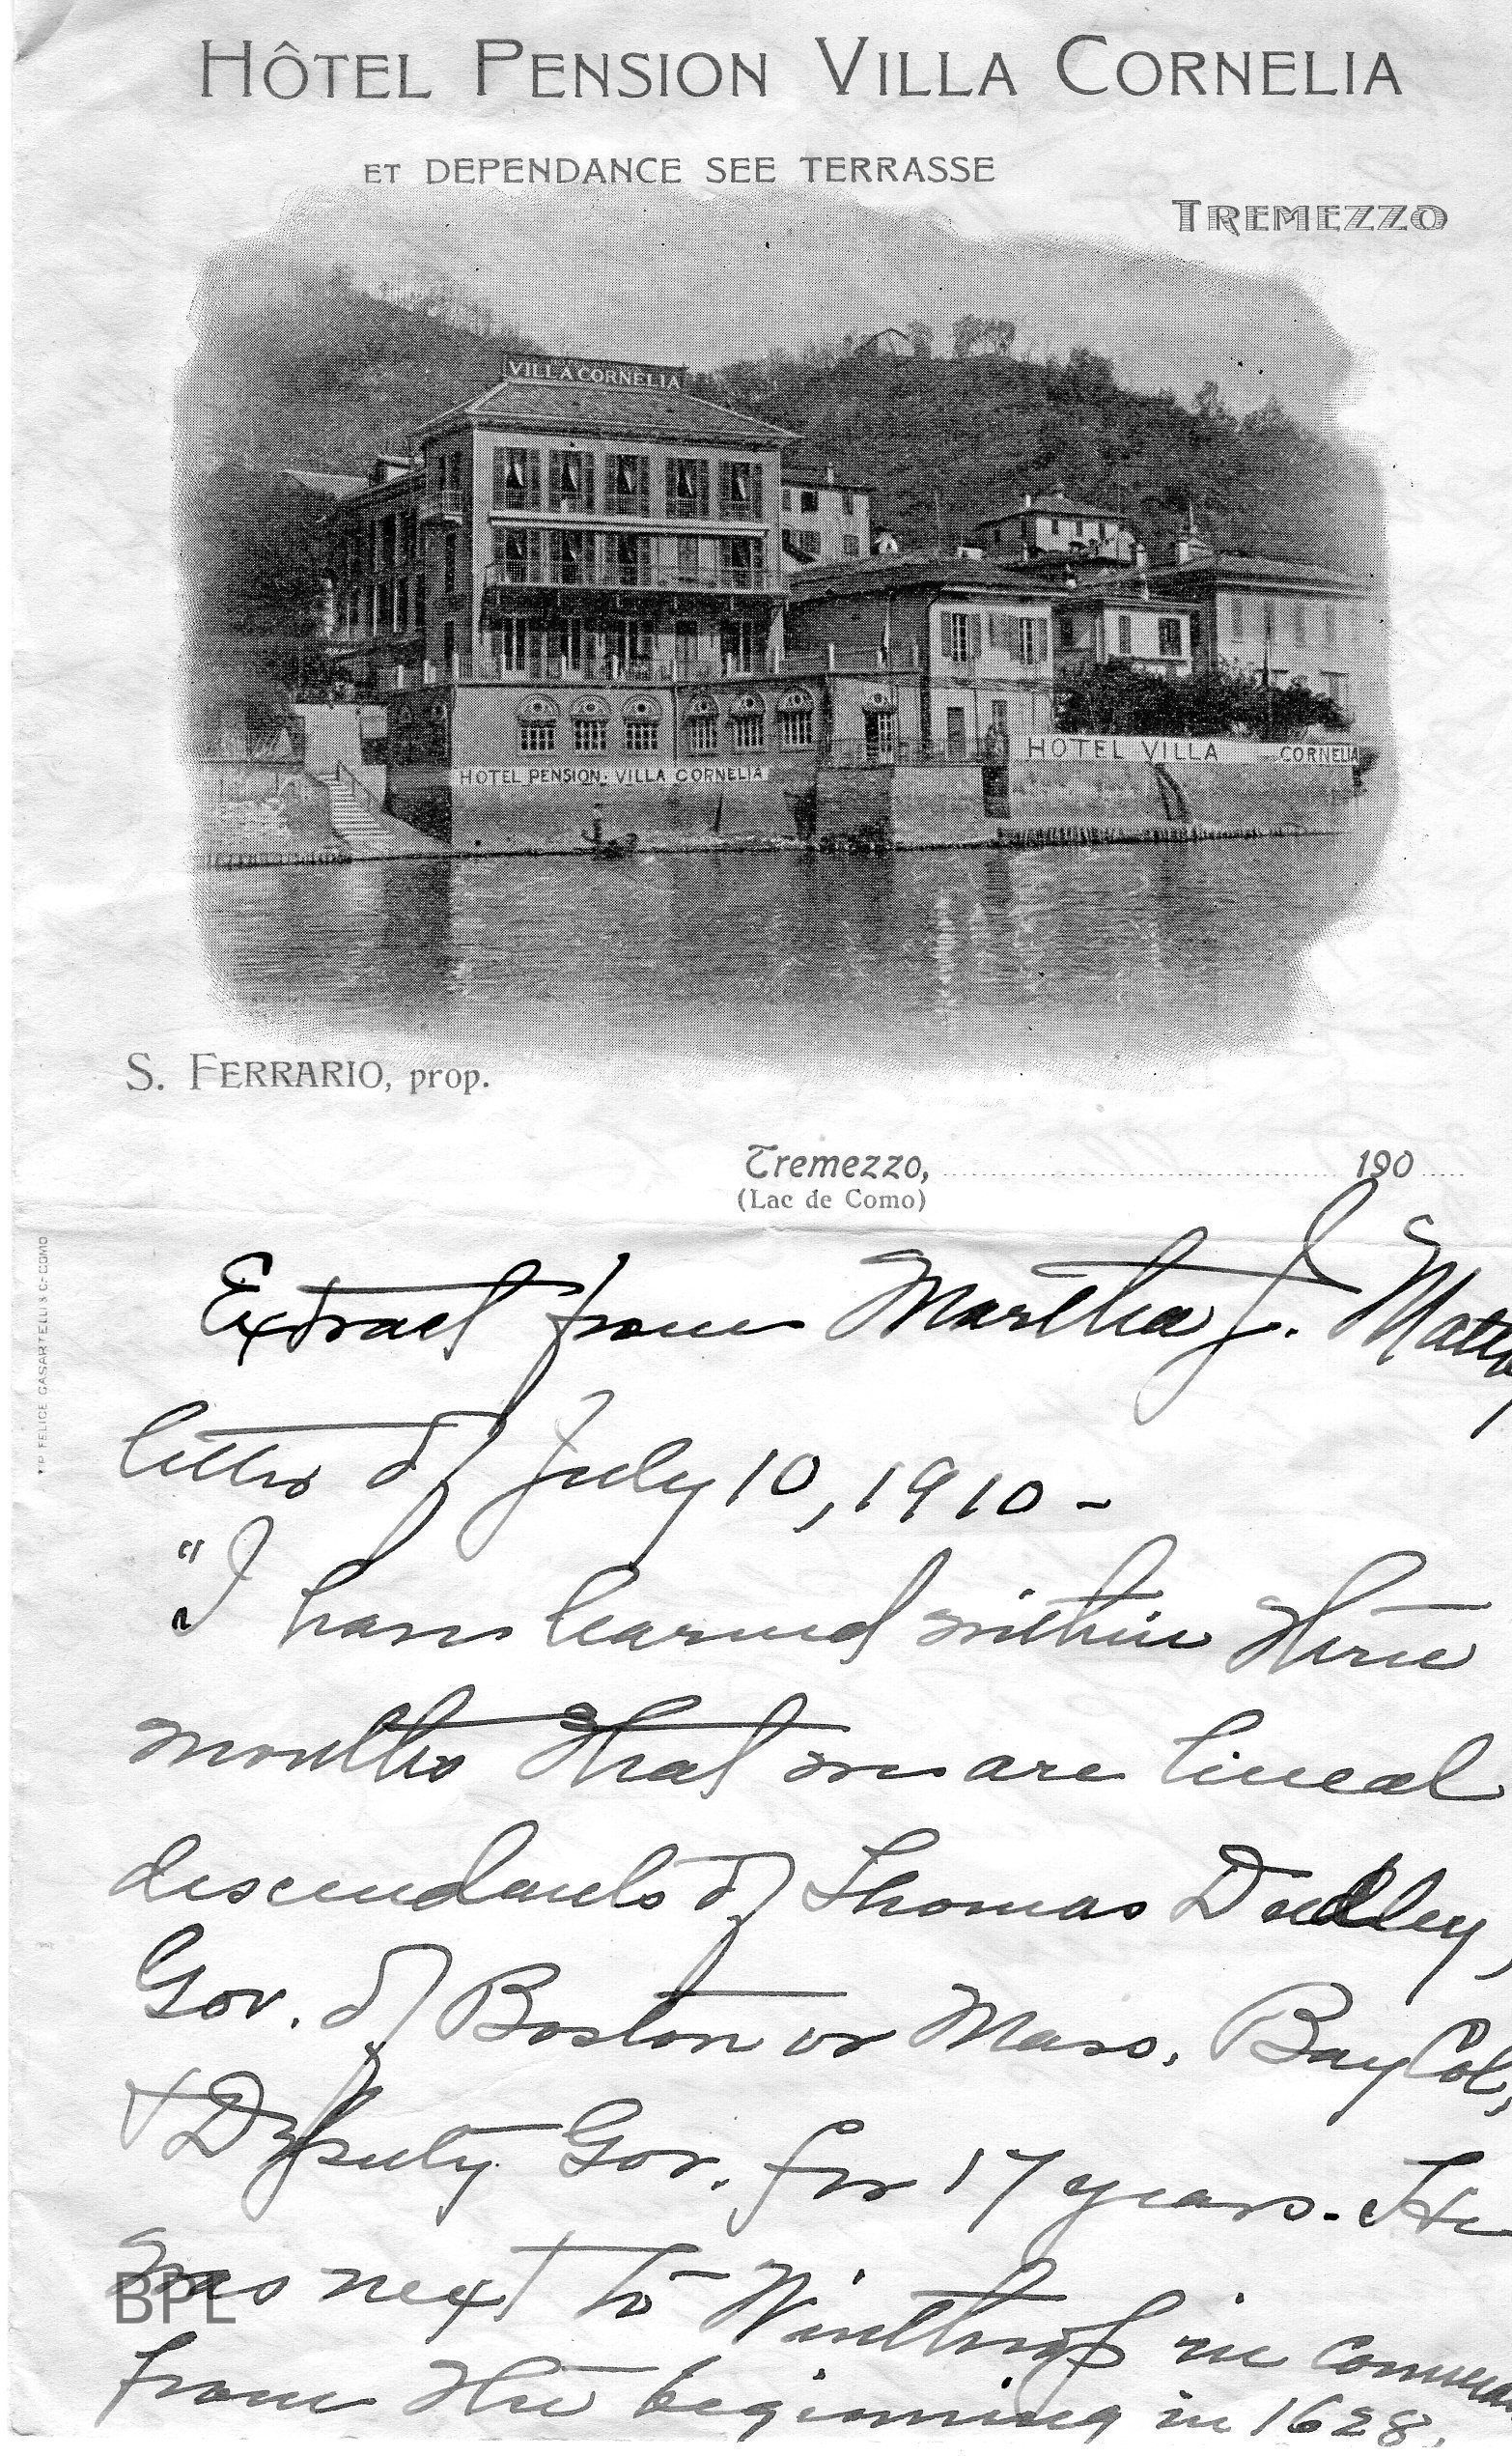 HÔTEL PENSION VILLA CORNELIA
ET DEPENDANCE SEE TERRASSE
TREMEZZO
VILLA CORNELIA
HOTEL PENSION. VILLA CORNELIA
HOTEL VILLA CORNELIA
S. FERRARIO, prop.
Tremezzo, 190
(Lac de Como)
TIP. FELICE CASARTELLI & C. COMO
Extract from Martha J.
letter of July 10, 1910 -
"I have learned within three
months that we are lineal
descendants of Thomas Dudley,
Gov. of Boston or Mass. Bay Col,
& Deputy Gov. for 17 years. He
was next to Winthrop in
from the beginning in 1628.
BPL